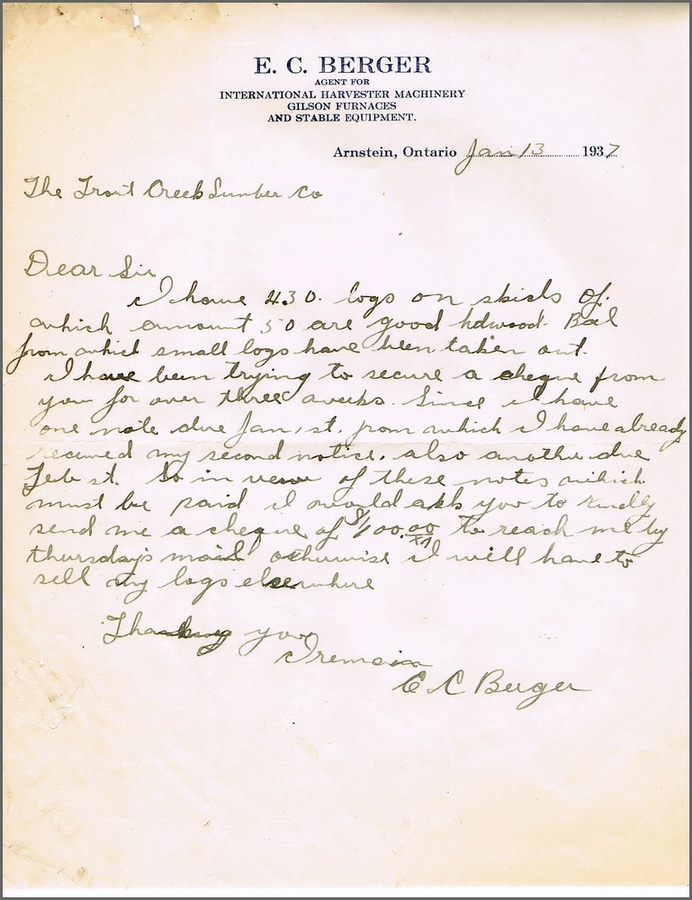 E. C. BERGER
AGENT FOR
INTERNATIONAL HARVESTER MACHINERY
GILSON FURNACES
AND STABLE EQUIPMENT.
Arnstein, Ontario Jan 13 1937
The Trout Creek Lumber Co
Dear Sir
I have 430. logs on skids of.
which amount 50 are good hdwood. Bal
from which small logs have been taken out.
I have been trying to secure a cheque from
you for over three weeks. Since I have
one note due Jan, st. from which I have already
received my second notice, also another due
Feb st. So in view of these notes which
must be paid I would ask you to kindly
send me a cheque of $100.00 to reach me by
thursday's mail otherwise I will have to
sell my logs elsewhere
Thanking you
I remain
E C Berger